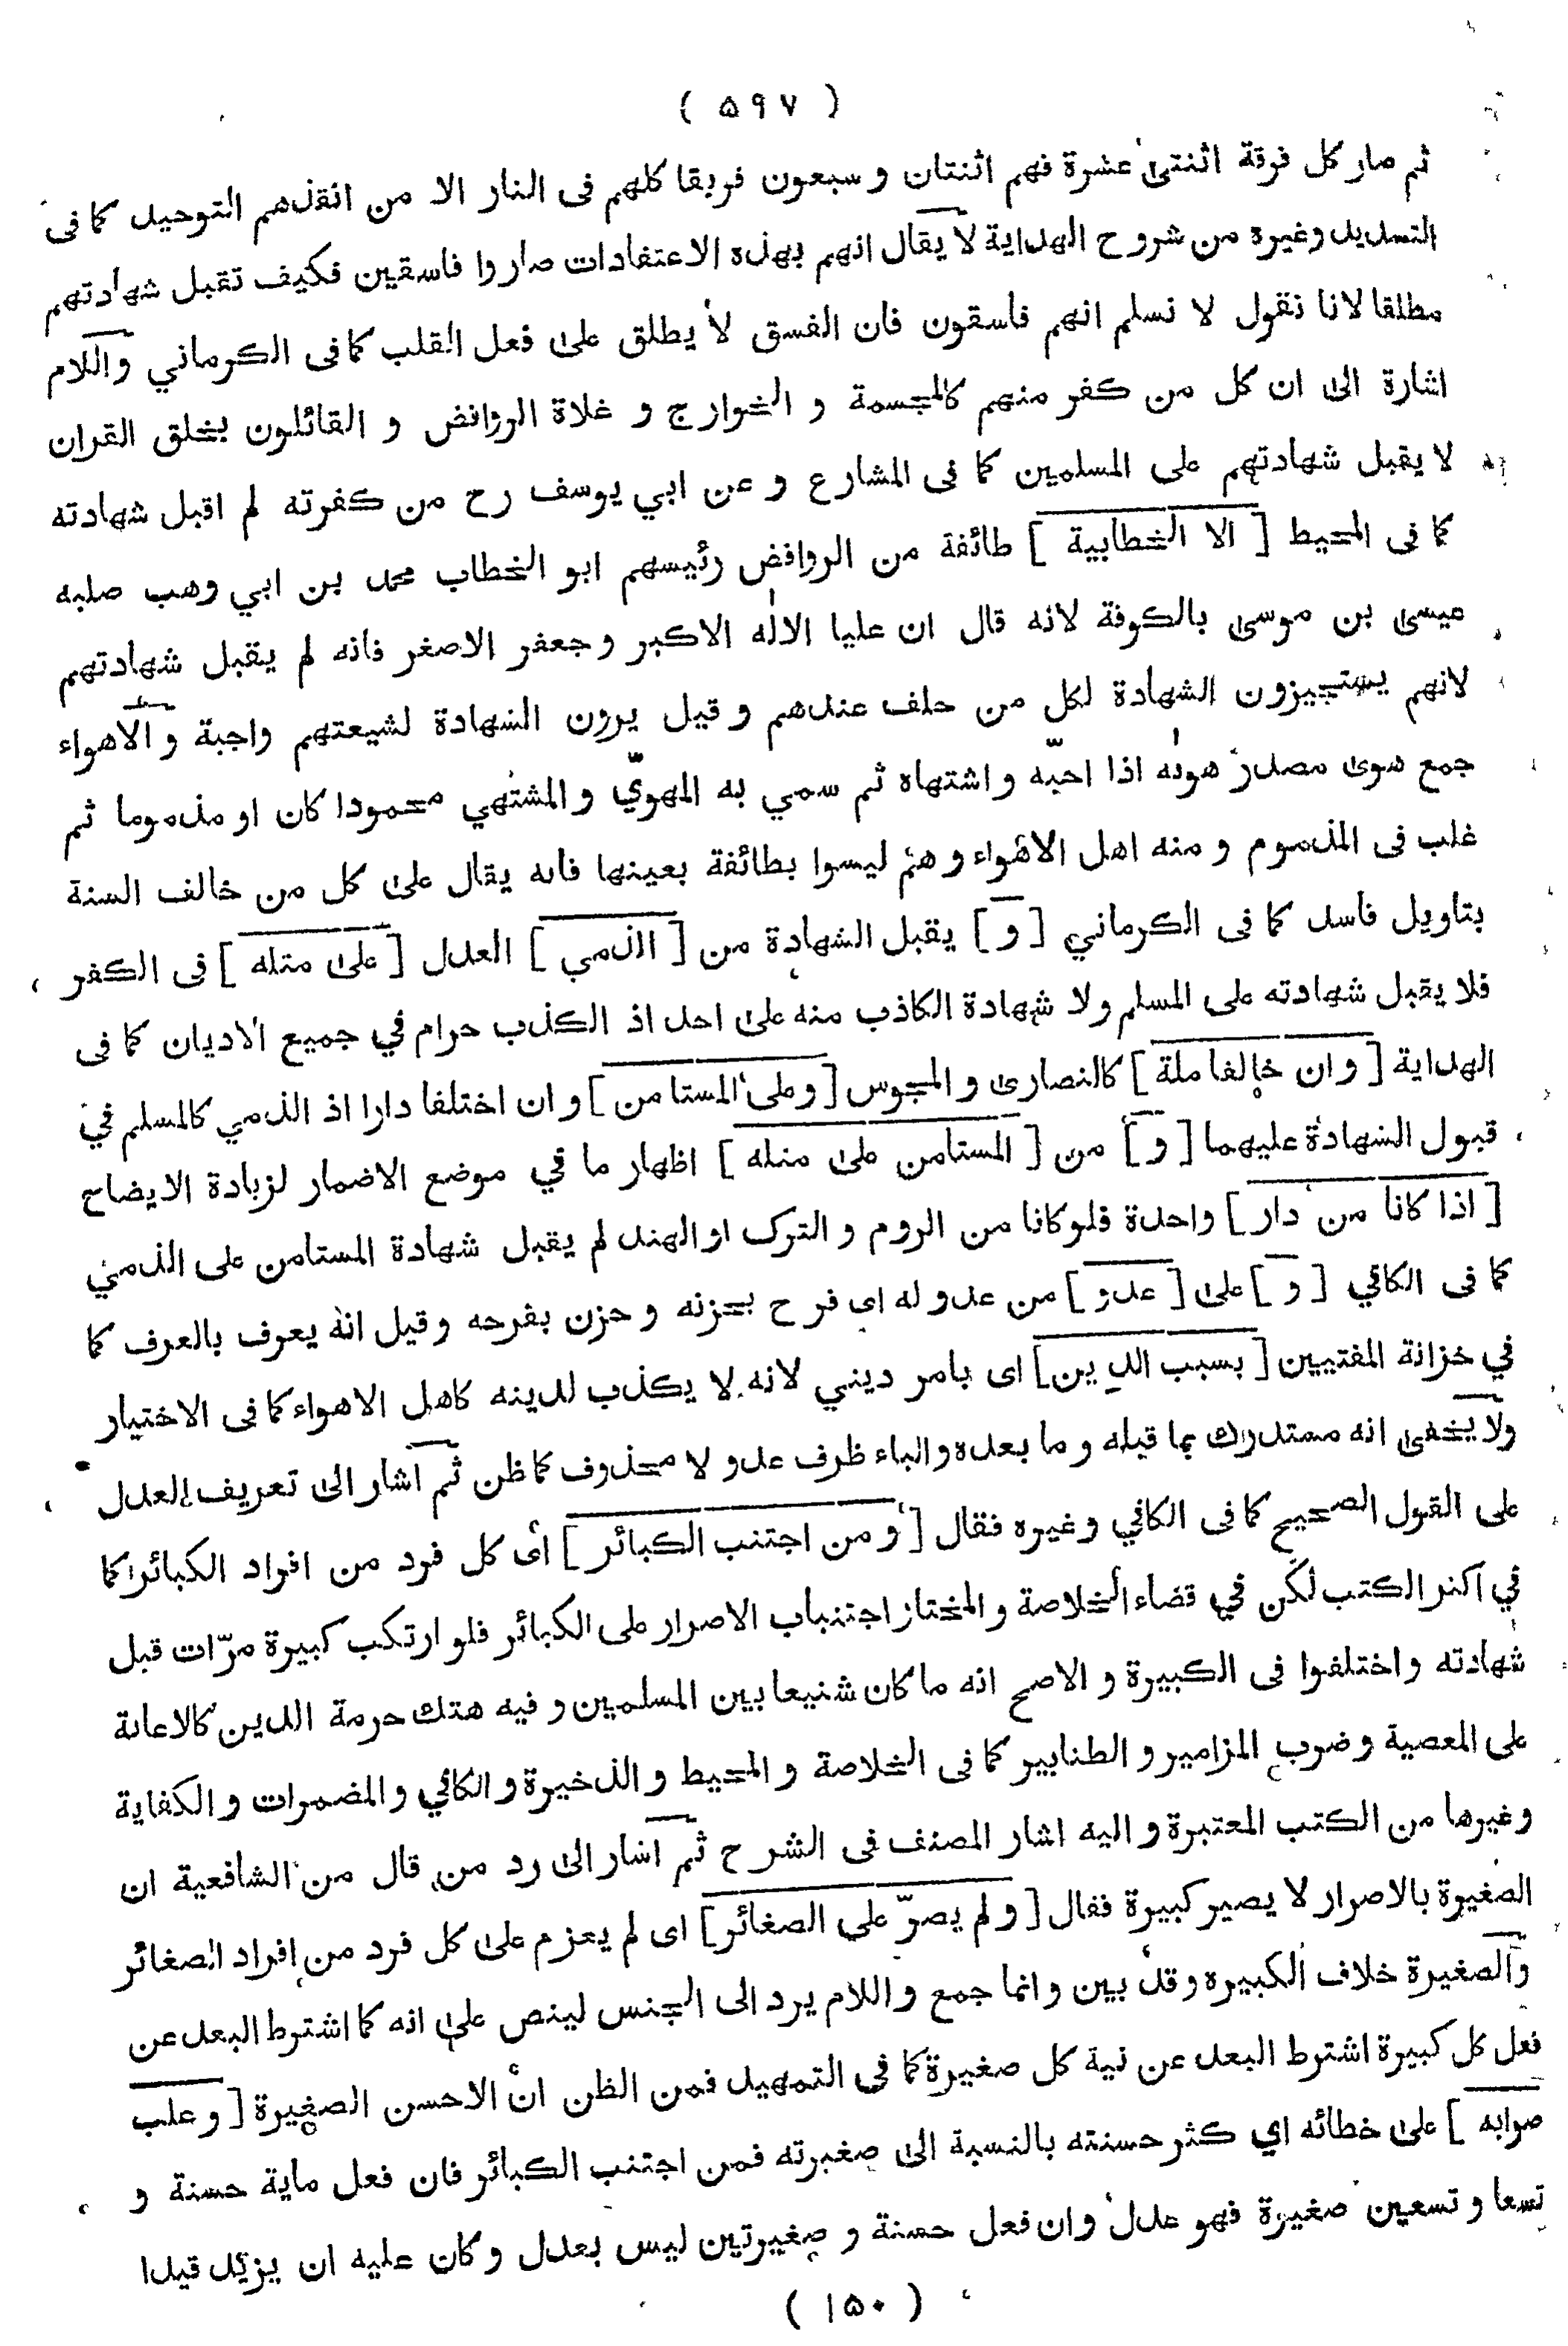 ( ۵۹۷ )
ثم صار كل فرقة اثنتى عشرة فهم اثنتان و سبعون فريقا كلهم فى النار الا من انقذهم التوحيد كما فى
التسديد وغيره من شروح الهداية لا يقال انهم بهذه الاعتقادات صاروا فاسقين فكيف تقبل شهادتهم
مطلقا لانا نقول لا نسلم انهم فاسقون فان الفسق لا يطلق على فعل القلب كما فى الكرماني واللام
اشارة الى ان كل من كفر منهم كالمجسمة و الخوارج و غلاة الروافض و القائلون بخلق القران
لا يقبل شهادتهم على المسلمين كما فى المشارع و عن ابي يوسف رح من كفرته لم اقبل شهادته
كما فى المحيط [ الا الخطابية ] طائفة من الروافض رئيسهم ابو الخطاب محمد بن ابي وهب صلبه
عيسى بن موسى بالكوفة لانه قال ان عليا الاله الاكبر و جعفر الاصغر فانه لم يقبل شهادتهم
لانهم يستجيزون الشهادة لكل من حلف عندهم و قيل يرون الشهادة لشيعتهم واجبة و الاهواء
جمع هوى مصدر هوىه اذا احبّه و اشتهاه ثم سمي به المهويّ و المشتهي محمودا كان او مذموما ثم
غلب فى المذموم و منه اهل الاهواء و هم ليسوا بطائفة بعينها فانه يقال على كل من خالف السنة
بتاويل فاسد كما فى الكرماني [ و ] يقبل الشهادة من [ الذمي ] العدل [ على مثله ] فى الكفر
فلا يقبل شهادته على المسلم ولا شهادة الكاذب منه على احد اذ الكذب حرام في جميع الاديان كما فى
الهداية [ و ان خالفا ملة ] كالنصارى و المجوس [ و على المستامن ] و ان اختلفا دارا اذ الذمي كالمسلم في
قبول الشهادة عليهما [ و ] من [ المستامن على مثله ] اظهار ما في موضع الاضمار لزيادة الايضاح
[ اذا كانا من دار ] واحدة فلو كانا من الروم و الترك او الهند لم يقبل شهادة المستامن على الذمي
كما فى الكافي [ و ] على [ عدو ] من عدو له اى فرح بحزنه و حزن بفرحه و قيل انه يعرف بالعرف كما
في خزانة المفتيين [ بسبب الدين ] اى بامر ديني لانه لا يكذب لدينه كاهل الاهواء كما فى الاختيار
ولا يخفى انه مستدرك بما قبله و ما بعده و الباء ظرف عدو لا محذوف كما ظن ثم اشار الى تعريف العدل
على القول الصحيح كما فى الكافي وغيره فقال [ و من اجتنب الكبائر ] اى كل فرد من افراد الكبائر كما
في اكثر الكتب لكن في قضاء الخلاصة و المختار اجتنباب الاصرار على الكبائر فلو ارتكب كبيرة مرّات قبل
شهادته و اختلفوا فى الكبيرة و الاصح انه ما كان شنيعا بين المسلمين و فيه هتك حرمة الدين كالاعانة
على المعصية و ضرب المزامير و الطنابير كما فى الخلاصة و المحيط و الذخيرة و الكافي و المضمرات و الكفاية
وغيرها من الكتب المعتبرة و اليه اشار المصنف فى الشرح ثم اشار الى رد من قال من الشافعية ان
الصغيرة بالاصرار لا يصير كبيرة فقال [ و لم يصرّ على الصغائر ] اى لم يعزم على كل فرد من افراد الصغائر
والصغيرة خلاف الكبيره و قد بين و انما جمع و اللام يرد الى الجنس لينص على انه كما اشترط البعد عن
فعل كل كبيرة اشترط البعد عن نية كل صغيرة كما فى التمهيد فمن الظن ان الاحسن الصغيرة [ و غلب
صوابه ] على خطائه اي كثر حسنته بالنسبة الى صغيرته فمن اجتنب الكبائر فان فعل ماية حسنة و
تسعا و تسعين صغيرة فهو عدل و ان فعل حسنة و صغيرتين ليس بعدل و كان عليه ان يزيد قيدا
( ۱۵۰ )